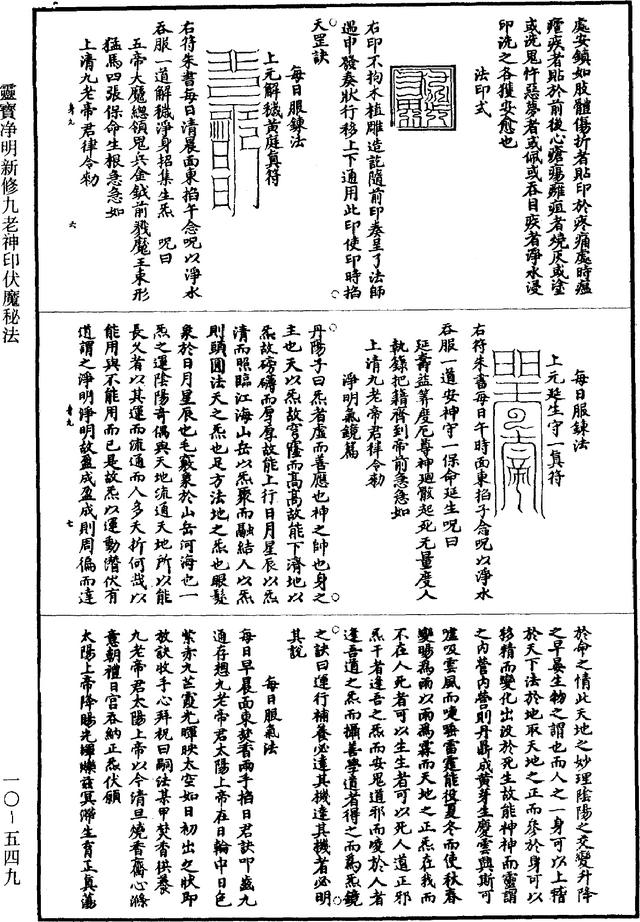 處安鎮如肢體傷折者貼印於疼痛處時瘟
瘧疾者貼於前後心瘡瘍癰疽者燒灰或塗
或洗鬼忤惡夢者或佩或吞目疾者淨水浸
印洗之各獲安愈也
法印式
右印不拘木植雕造訖隨前印奏呈了法師
遇申發奏狀行移上下通用此印使印時掐
天罡訣
每日服鍊法
上元解穢黃庭真符
右符朱書每日清晨面東掐午念呪以淨水
吞服一道解穢淨身招集生炁 呪曰
五帝大魔總領鬼兵金鉞前戮魔王束形
猛馬四張保命生根急急如
上清九老帝君律令勑
每日服鍊法
上元延生守一真符
右符朱書每日午時面東掐子念呪以淨水
吞服一道安神守一保命延生呪曰
延壽益筭度厄尊神迴骸起死无量度人
執籙把籍齊到帝前急急如
上清九老帝君律令勑
淨明氣鏡篇
丹陽子曰炁者虛而善應也神之帥也身之
主也天以炁故穹窿而高高故能下濟地以
炁故磅礡而厚厚故能上行日月星辰以炁
清而照臨江海山岳以炁聚而融結人以炁
則頭圓法天之炁也足方法地之炁也眼髮
象於日月星辰也毛竅象於山岳河海也一
炁之運陰陽奇偶與天地流通天地所以能
長久者以其運而流通而人多夭折何哉以
能用與不能用而已是故炁以運動潛伏有
道謂之淨明淨明故盈成盈成則周徧而達
於命之情此天地之妙理陰陽之交變升降
之早晏生物之謂也而人之一身可以上稽
於天下法於地取天地之正而參於身可以
移精而變化出沒於死生故能神神而靈謂
之內營內營則丹鼎成黃芽生慶雲興斯可
噓吸雲風而唾唾雷霆能役夏冬而使秋春
變暘為雨以雨為霖而天地之正炁在我而
不在人死者可以生生者可以死人道正邪
炁干者逢吾之炁而安鬼道邪而唆於人者
逢吾道之炁而攝善學道者得之而為炁鏡
之訣曰運行補養必達其機達其機者必明
其說
每日服氣法
每日早晨面東焚香兩手掐日君訣叩齒九
通存想九老帝君太陽上帝在日輪中日色
紫赤九芒霞光暉映太空如日初出之狀即
放訣收手心拜祝曰嗣法某甲焚香拱養
九老帝君太陽上帝以今清旦燒香齋心滌
慮朝禮日宮吞納正炁伏願
太陽上帝降賜光暉爍茲冥滯生育正真蕩
靈寶淨明新修九老神印伏魔秘法
一〇－五四九
六
七